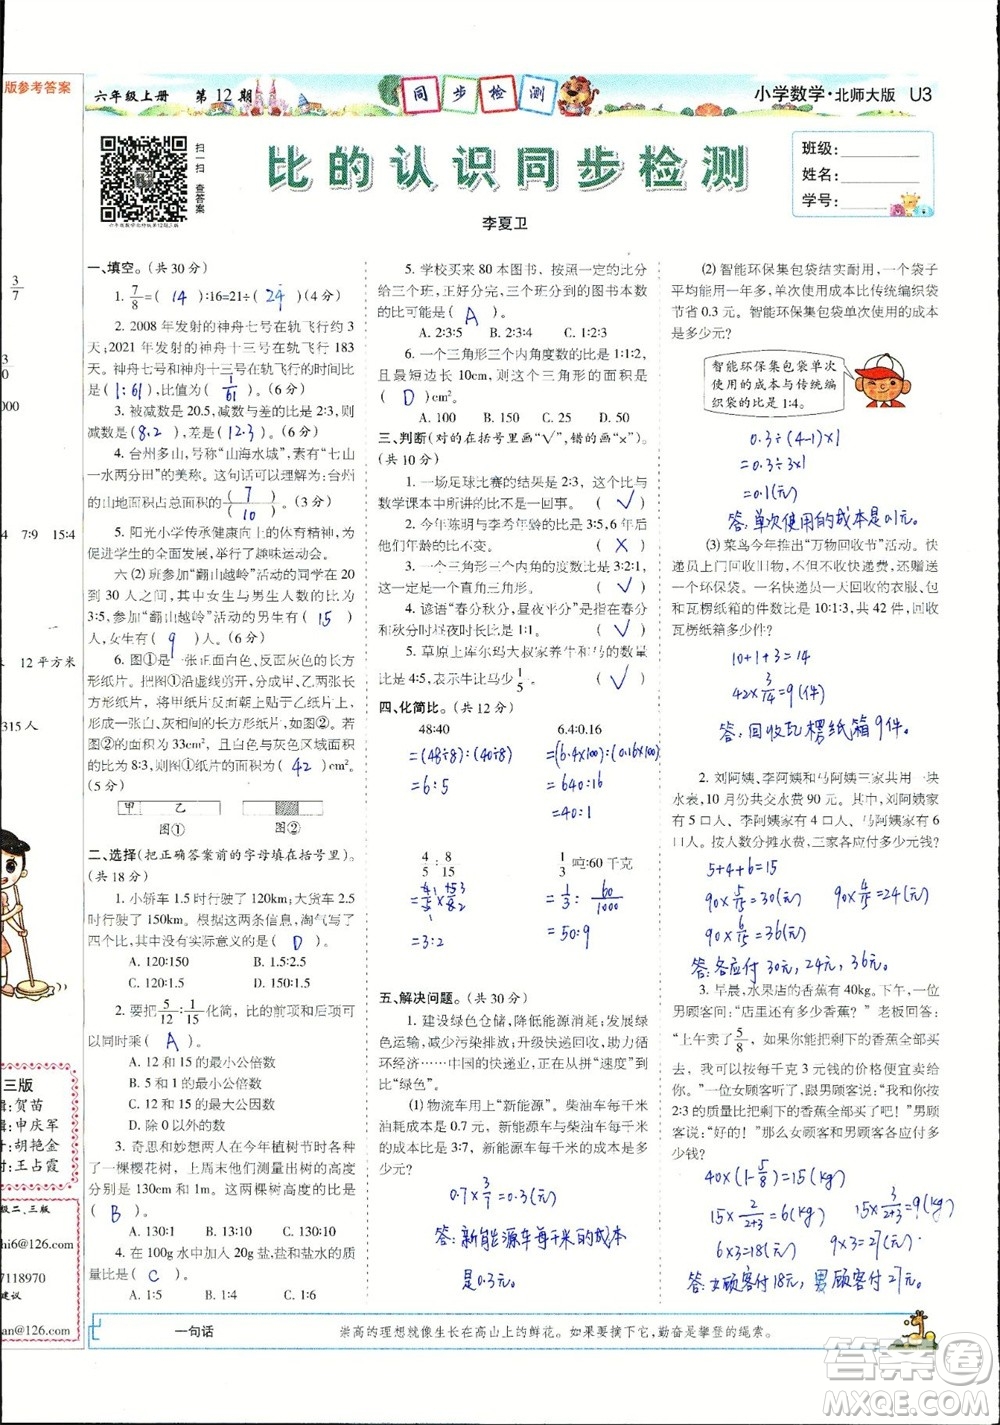 版参考答案
3/7
3
0
000
4 7:9 15:4
12 平方米
315 人
三版
辑: 贺苗
辑: 申庆军
计: 胡艳金
对: 王占霞
级二、三版
hi6@126.com
7118970
建议
an@126.com
六年级上册 第 12 期
同步检测
小学数学·北师大版 U3
扫一扫 查答案
比的认识同步检测
李夏卫
班级:
姓名:
学号:
一、填空。(共 30 分)
1. 7/8=( 14 ):16=21÷( 24 )(4 分)
2. 2008 年发射的神舟七号在轨飞行约 3
天;2021 年发射的神舟十三号在轨飞行 183
天。神舟七号和神舟十三号在轨飞行时间的比是
(1:61),比值为( 1/61 )。(6 分)
3. 被减数是 20.5,减数与差的比是 2:3,则
减数是(8.2),差是(12.3)。(6 分)
4. 台州多山,有“山海水城”,素有“七山
一水两分田”的美称。这句话可以理解为:台州
的山地面积占总面积的( 7 )/( 10 )。(3 分)
5. 阳光小学传承健康向上的体育精神,为
促进学生的全面发展,举行了趣味运动会。
六 ⑵ 班参加“翻山越岭”活动的同学在 20
到 30 人之间,其中女生与男生人数的比是
3:5,参加“翻山越岭”活动的男生有( 15 )
人,女生有( 9 )人。(6 分)
6. 图①是一张正面白色、背面灰色的长方形
纸片,把图①沿虚线剪开,分成甲、乙两张长方
形纸片,将乙纸片翻面后放在甲纸片上,形
成一张白、灰相间的长方形,如图②。图②长方
形的面积为 33cm²,白色与灰色区域面积的
比为 8:3,图①纸片的面积为( 42 )cm²。
(5 分)
甲 乙
图① 图②
二、选择(把正确答案前的字母填在括号里)。
(共 18 分)
1. 小轿车 1.5 时行驶了 120km;大货车 2.5
时行驶了 150km。根据这两条信息,淘气写了
四个比,其中没有实际意义的是( D )。
A. 120:150 B. 1.5:2.5
C. 120:1.5 D. 150:1.5
2. 要把 5/12 : 7/15 化简,比的前项和后项可
以同时乘( A )。
A. 12 和 15 的最小公倍数
B. 5 和 1 的最小公倍数
C. 12 和 15 的最大公因数
D. 除 0 以外的任意数
3. 奇思和妙想两人在今年植树节时各种
了一棵樱花树,上周末他们测量出树的高度
分别是 130cm 和 1m。这两棵树高度的比是
( B )。
A. 130:1 B. 13:10 C. 130:10
4. 在 100g 水中加入 20g 盐,盐和盐水的质
量比是( C )。
A. 1:5 B. 1:4 C. 1:6
5. 学校买来 80 本图书,按照一定的比分
给三个班,正好分完,三个班分到的图书本数的
比可能是( A )。
A. 2:3:5 B. 1:2:3 C. 2:3:4
6. 一个三角形三个内角度数的比是 1:1:2,
且最短边的长度是 10cm,这个三角形的面积是
( D )cm²。
A. 100 B. 150 C. 25 D. 50
三、判断(对的在括号里画“√”,错的画“×”)。
(共 10 分)
1. 一场足球比赛的结果是 3:2,这个比与
数学课本中所讲的比不是一回事。 ( √ )
2. 今年陈明与李希年龄的比是 3:5,6 年后
他们年龄的比不变。 ( X )
3. 一个三角形三个内角的度数比是 3:2:1,
这一定是一个直角三角形。 ( √ )
4. 谚语“春分秋分,昼夜平分”,意思是春分
和秋分时昼夜时长比是 1:1。 ( √ )
5. 草原上库尔玛大叔家养牛和马的数量
比是 4:5,表示牛比马少 1/5。 ( √ )
四、化简比。(共 12 分)
48:40 6.4:0.16
=(48÷8):(40÷8) =(6.4×100):(0.16×100)
=6:5 =640:16
=40:1
4/5 : 8/15 1/3 吨:60 千克
=4/5 × 15/8 =1/3 : 60/1000
=3:2 =50:9
五、解决问题。(共 30 分)
1. 建设绿色仓储,使用新能源车,发展
绿色运输,减少污染排放;升级快递回收,助力
循环经济——中国的快递业,正在从拼“速度”到
比“绿色”。
⑴ 物流车用上“新能源”。柴油车每千米
油耗成本是 0.7 元,新能源车每千米与柴油车每千米
的成本比是 3:7,新能源车每千米的成本是多
少元?
0.7×3/7=0.3(元)
答:新能源车每千米的成本
是0.3元。
⑵ 智能环保集包袋结实耐用,一个袋子
平均能用一年多,单次使用成本比传统编织袋
节省 0.3 元。智能环保集包袋单次使用的成本
是多少元?
智能环保集包袋单次
使用的成本与传统编
织袋的比是 1:4。
0.3÷(4-1)×1
=0.3÷3×1
=0.1(元)
答:单次使用的成本是0.1元。
⑶ 菜鸟今年推出“万物回收节”活动。快
递员上门回收旧物,不收快递费,还赠送
一个环保袋。一名快递员一天回收的衣服、包
和瓦楞纸箱的件数比为 10:1:3,共 42 件,回收
瓦楞纸箱多少件?
10+1+3=14
42×3/14=9(件)
答:回收瓦楞纸箱9件。
2. 刘阿姨、李阿姨和马阿姨三家共用一块
水表,10 月份共交水费 90 元。刘阿姨家有
5 口人、李阿姨家有 4 口人、马阿姨家有 6
口人。按人数分摊水费,三家各应付多少元钱?
5+4+6=15
90×5/15=30(元) 90×4/15=24(元)
90×6/15=36(元)
答:各应付30元,24元,36元。
3. 早晨,水果店的香蕉有 40kg。下午,一位
男顾客问:“店里还有多少香蕉?”老板回答:
“上午卖了 5/8,现在剩下的香蕉全部卖给
我,可以按每千克 3 元钱的价格便宜卖给
你。”一位女顾客听了,跟男顾客商量:“我们按
2:3 的质量比把剩下的香蕉全部买下吧!”男顾
客说:“好的!”那么女顾客、男顾客各应付多
少钱?
40×(1-5/8)=15(kg)
15×2/(2+3)=6(kg) 15×3/(2+3)=9(kg)
6×3=18(元) 9×3=27(元)
答:女顾客付18元,男顾客付27元。
一句话 崇高的理想就像生长在高山上的鲜花。如果要摘下它,勤奋是攀登的绳索。
答案圈
MXQE.COM